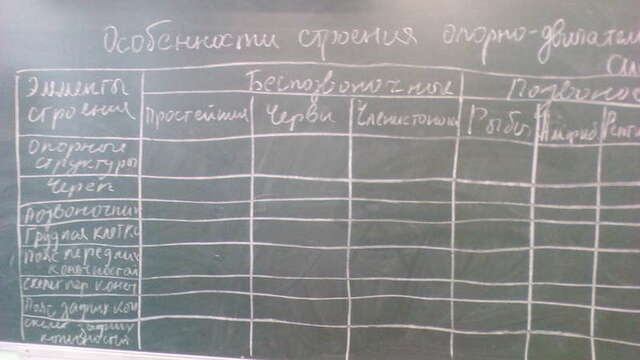 Особенности строения опорно-двигател
сис
Элементы
строения
Беспозвоночные
Позвонос
Простейшие
Черви
Членистоноги
Рыбы
Амфиб
Репти
Опорные
структуры
Череп
Позвоночник
Грудная клетка
Пояс передних
конечностей
скелет пер конеч
Пояс задних кон
скелет задних
конечностей